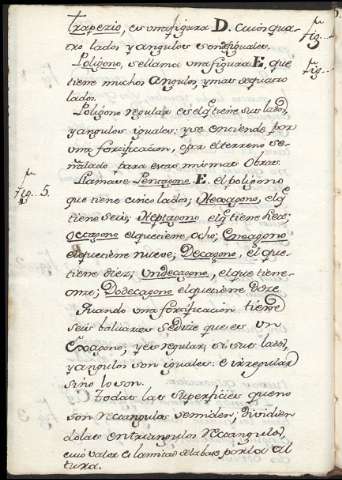 trapezio, es una figura D. cuios qua-
tro lados, y angulos son desiguales.
Poligono, se llama una figura E, que
tiene muchos angulos, y mas de quatro
lados.
Poligono regular es el q̃ tiene sus lados,
y angulos iguales: y se entiende por
una fortificacion, ô por el terreno se-
ñalado para esas mismas Obras.
Llamase Pentagono E. el poligono
que tiene cinco lados; Hexagono, el q̃
tiene seis; Heptagono el q̃ tiene siete;
Octagono el que tiene ocho; Eneagono
el que tiene nueve; Decagono, el que
tiene diez; Undecagono, el que tiene
onze; Dodecagono el que tiene doze
Quando una fortificacion tiene
seis baluartes se dize que es un
Exagono; y es regular, si sus lados,
y angulos son iguales: e irregular
si no lo son.
Todas las superficies que no
son rectangulas se miden, dividien-
dolas en triangulos rectangulos,
cuio valor es la mitad de la base por la al
tura.
fig.
fig.
fig. 5.